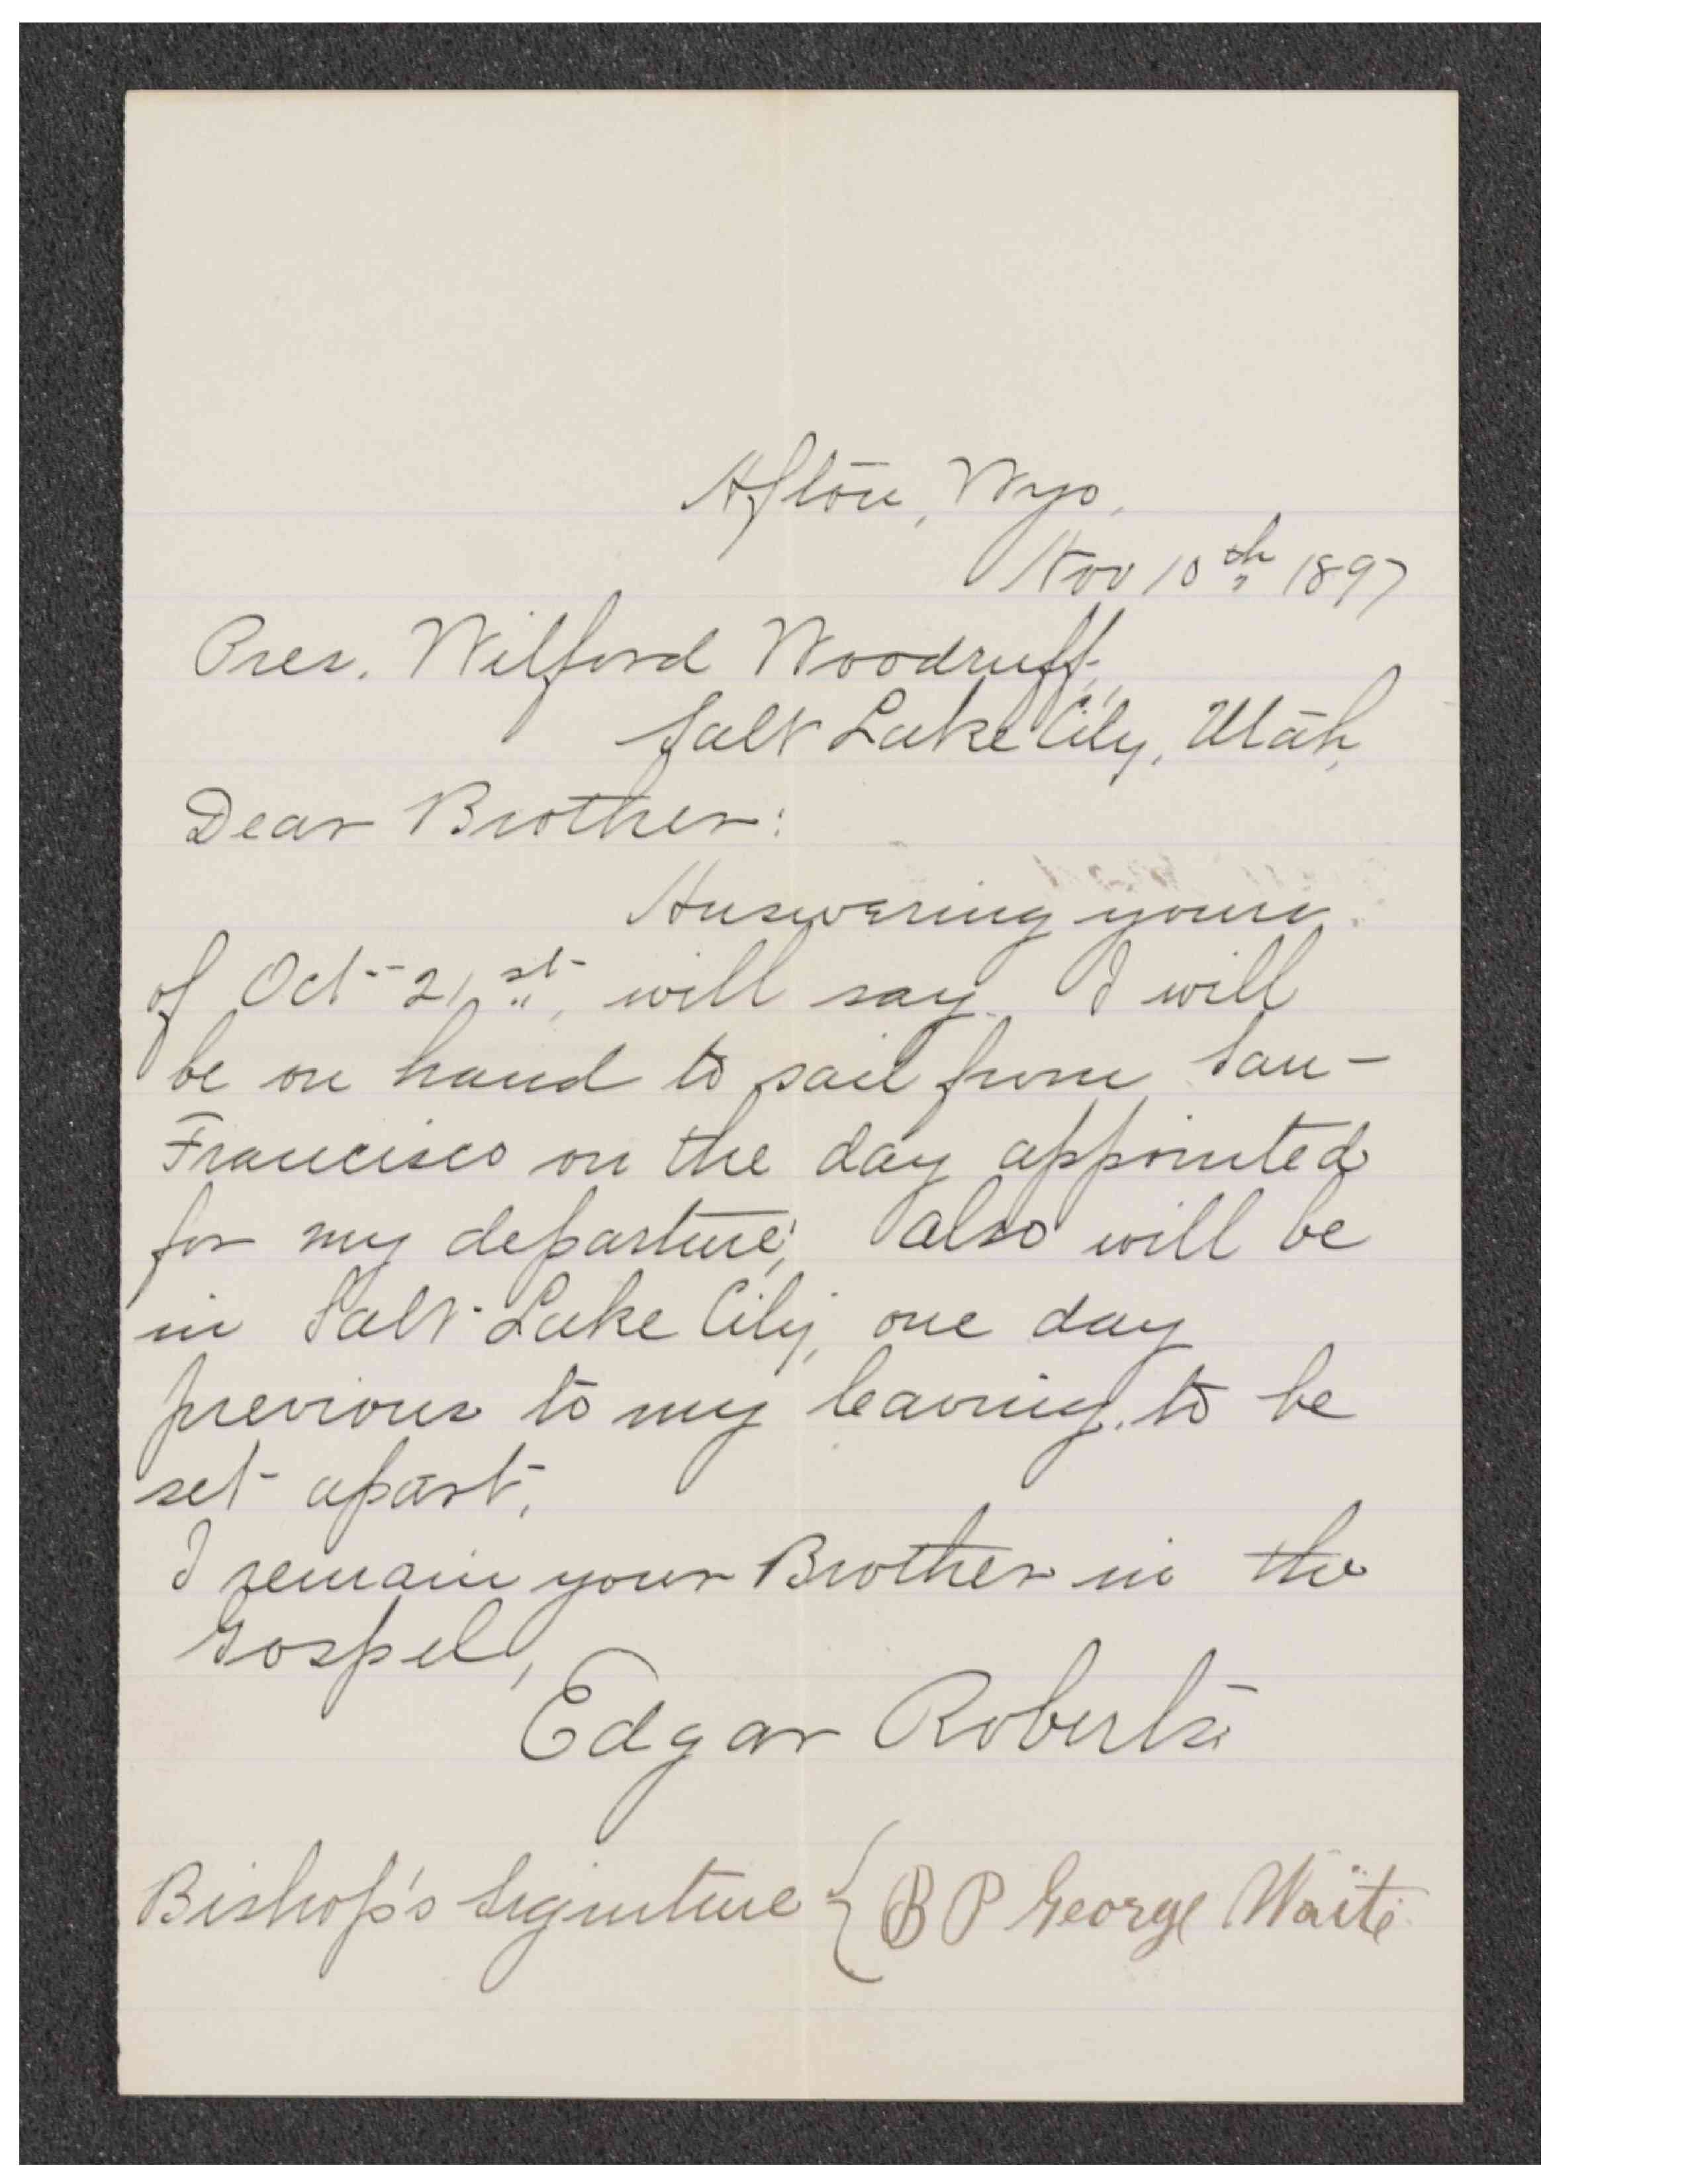 Afton, Wyo,
Nov 10th, 1897
Pres. Wilford Woodruff,
Salt Lake City, Utah,
Dear Brother:
Answering yours
of Oct 21st, will say I will
be on hand to sail from San-
Francisco on the day appointed
for my departure; also will be
in Salt Lake City, one day
previous to my leaving, to be
set apart.
I remain your Brother in the
Gospel,
Edgar Roberts
Bishop's Signiture { B P George Waite